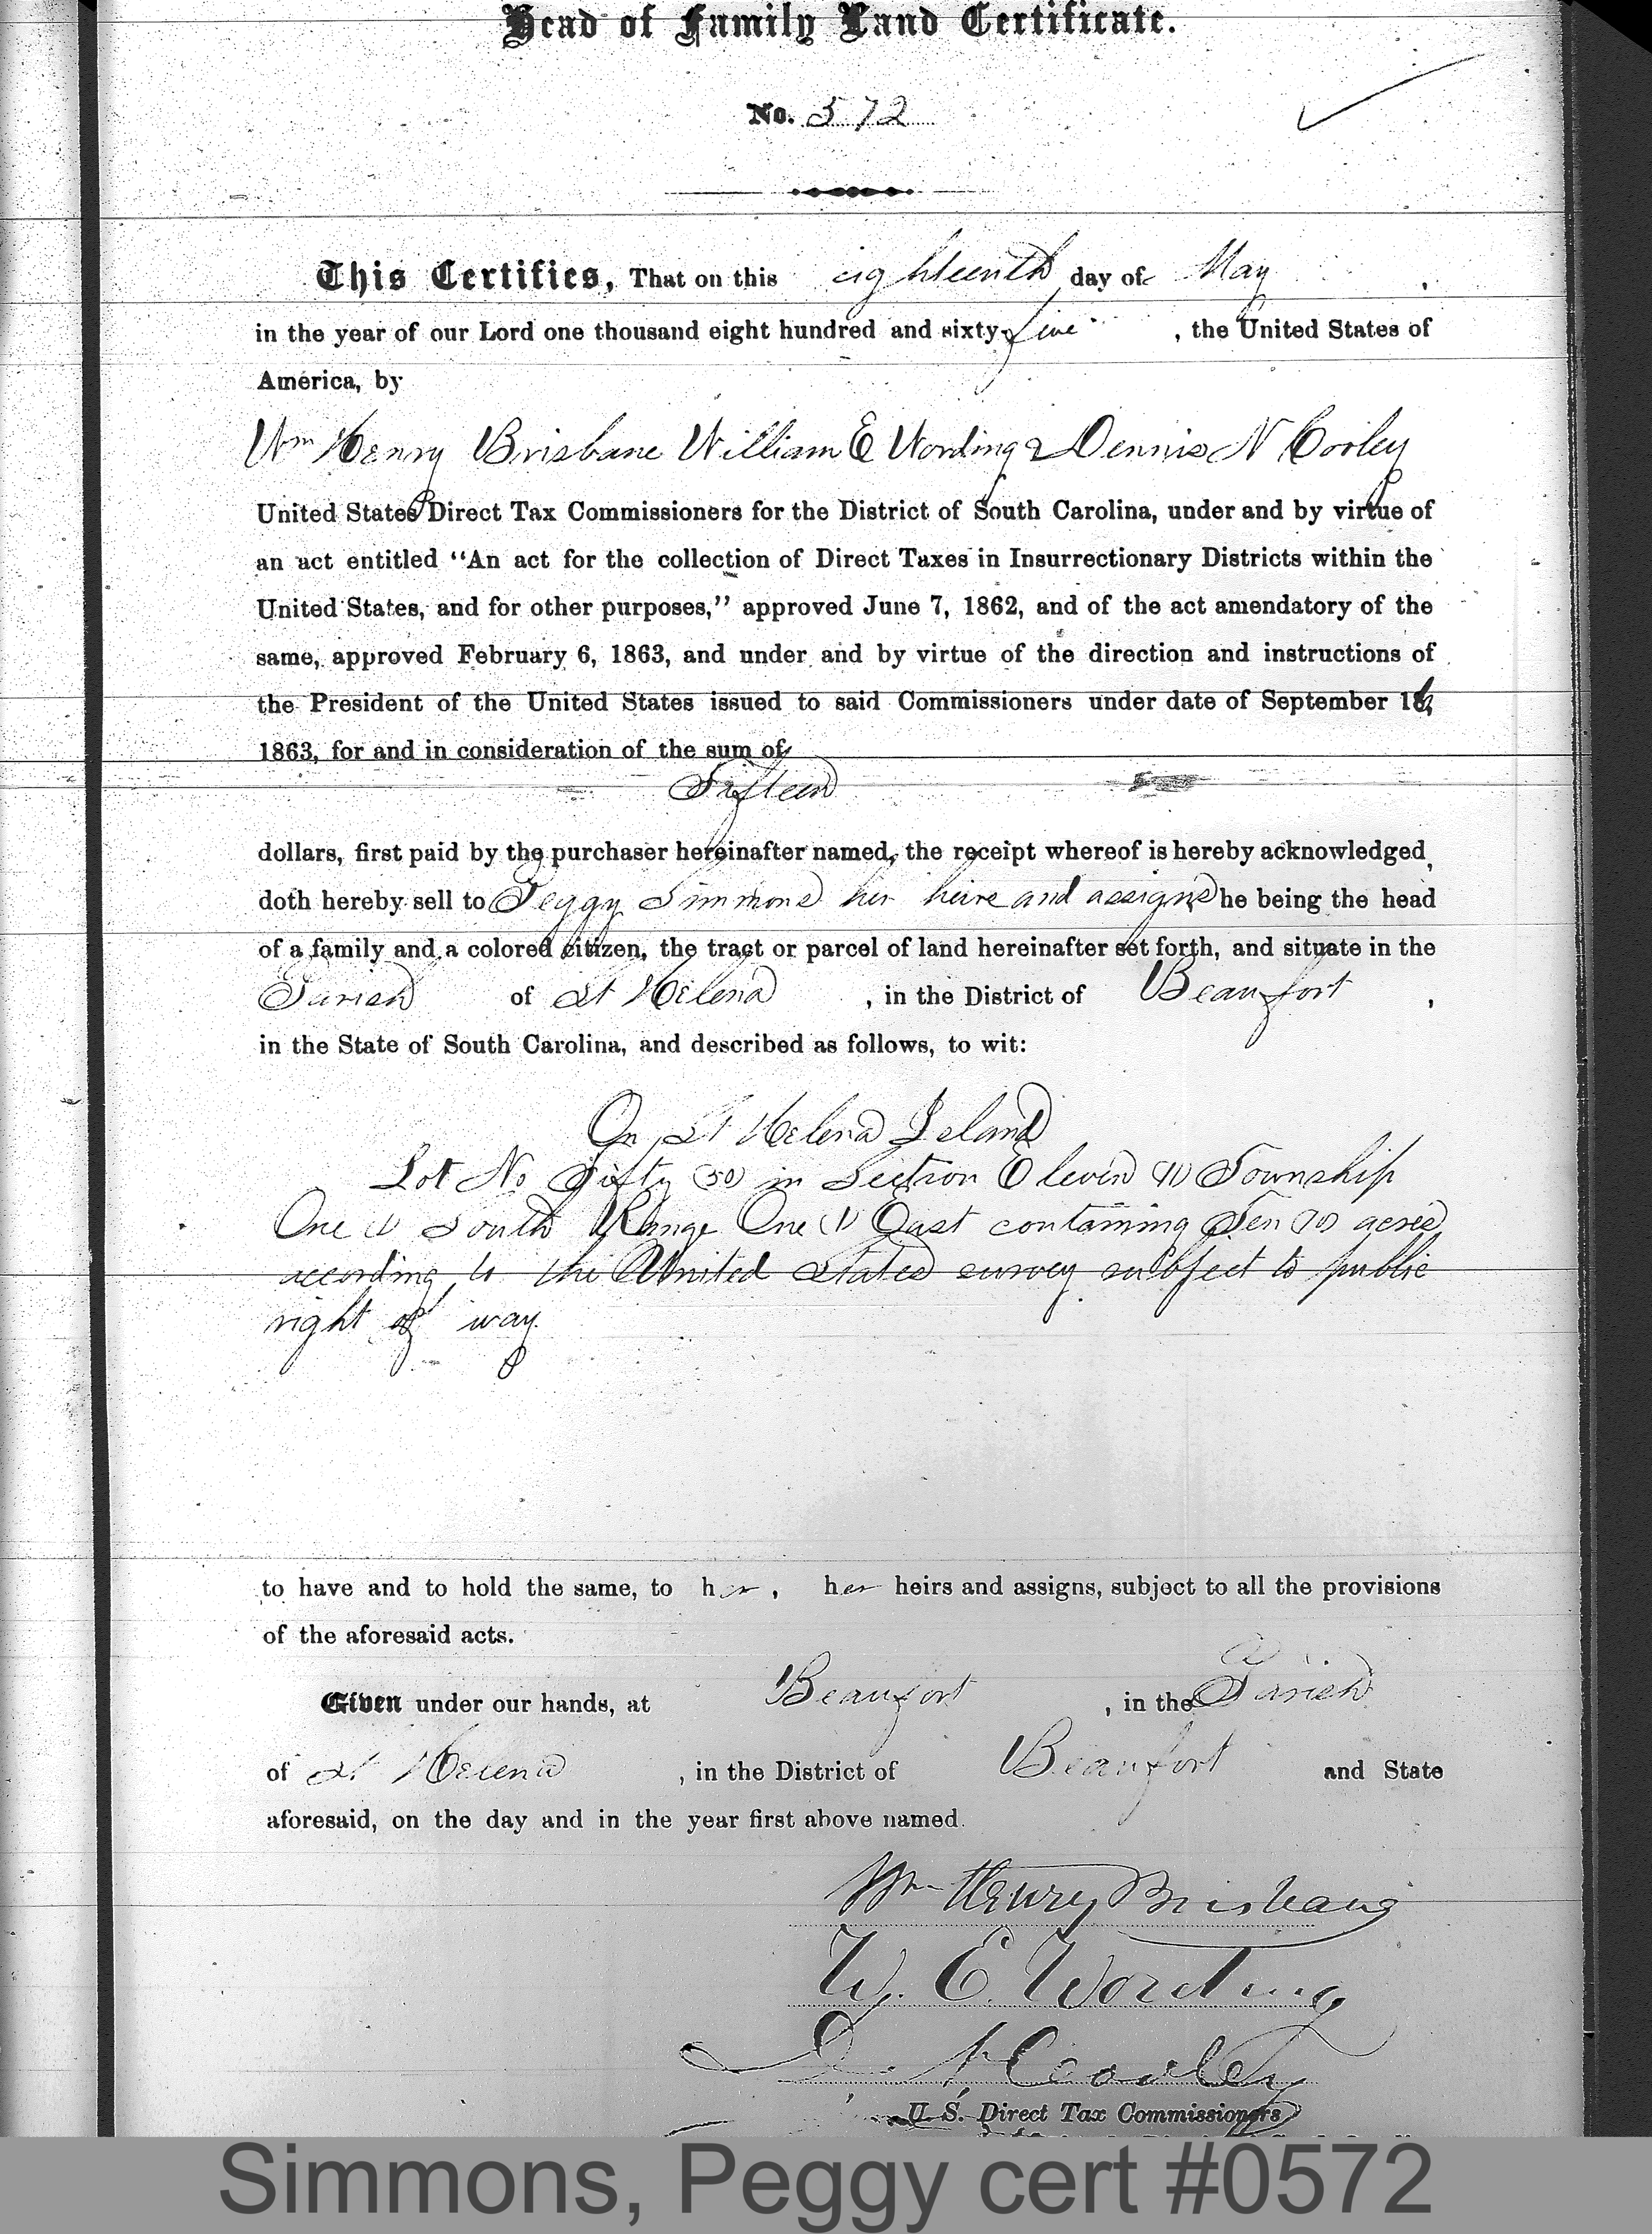 Head of Family Land Certificate.
No. 572
This Certifies, That on this eighteenth day of May,
in the year of our Lord one thousand eight hundred and sixty-five, the United States of
America, by
Wm Henry Brisbane William E Wording & Dennis N Cooley
United States Direct Tax Commissioners for the District of South Carolina, under and by virtue of
an act entitled “An act for the collection of Direct Taxes in Insurrectionary Districts within the
United States, and for other purposes,” approved June 7, 1862, and of the act amendatory of the
same, approved February 6, 1863, and under and by virtue of the direction and instructions of
the President of the United States issued to said Commissioners under date of September 16,
1863, for and in consideration of the sum of
Fifteen
dollars, first paid by the purchaser hereinafter named, the receipt whereof is hereby acknowledged,
doth hereby sell to Peggy Simmons her heirs and assigns, she being the head
of a family and a colored citizen, the tract or parcel of land hereinafter set forth, and situate in the
Parish of St Helena, in the District of Beaufort,
in the State of South Carolina, and described as follows, to wit:
On St Helena Island
Lot No Fifty (50) in Section Eleven (11) Township
One (1) South Range One (1) East containing Ten (10) acres
according to the United States survey subject to public
right of way
to have and to hold the same, to her, her heirs and assigns, subject to all the provisions
of the aforesaid acts.
Given under our hands, at Beaufort, in the Parish
of St Helena, in the District of Beaufort and State
aforesaid, on the day and in the year first above named.
Wm Henry Brisbane
W. E. Wording
D. N. Cooley
U. S. Direct Tax Commissioners
Simmons, Peggy cert #0572